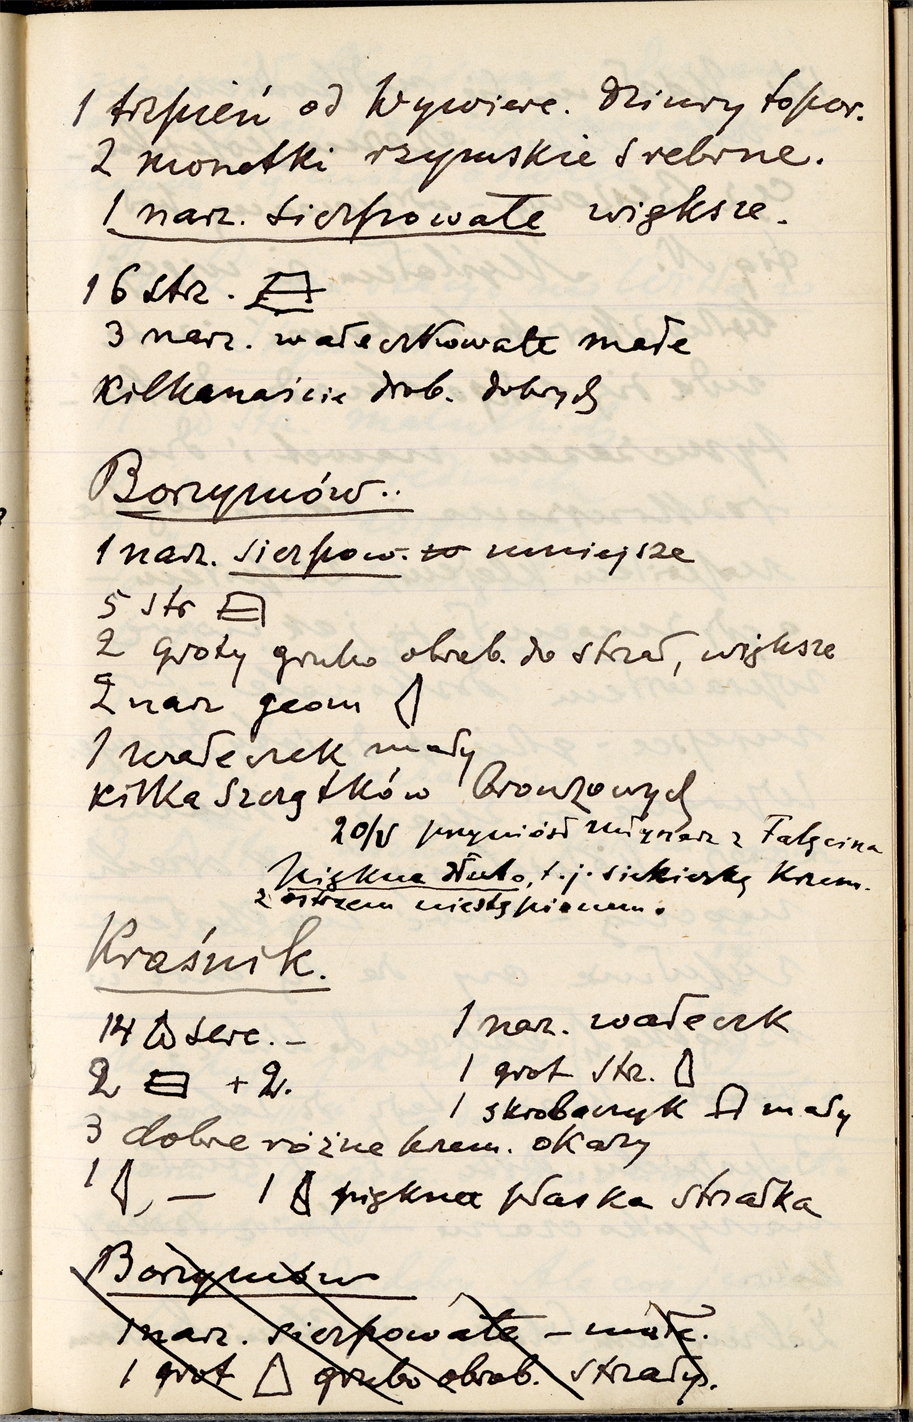 1 trzpień od wywierc. dziury topor.
2 monetki rzymskie srebrne.
1 narz. sierpowate większe.
16 strz.
3 narz. wałeczkowate małe
kilkanaście drob. dobrych
Borzymów..
1 narz. sierpow. mniejsze
5 str
2 groty grubo obrab. do strzał, większe
2 narz geom
1 wałeczek mały
kilka szczątków bronzowych
20/V przyniósł młynarz z Falęcina
piękne dłuto, t.j. siekierkę krzem.
z ostrzem niestępionem.
Kraśnik.
14 serc. –
1 narz. wałeczk
2 + 2.
1 grot strz.
1 skrobaczyk mały
3 dobre różne krzem. okazy
1 , — 1 piękna płaska strzałka
Borzymów
1 narz. sierpowate – małe.
1 grot grubo obrab. strzały.